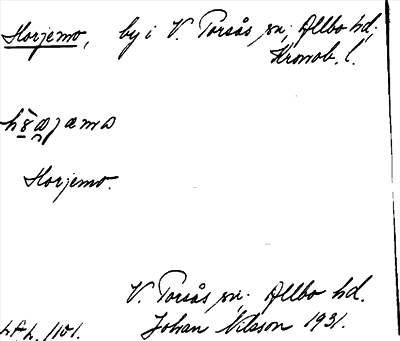 Horjemo, by i V. Torsås sn; Allbo hd;
Kronob. l.
Horjemo.
V. Torsås sn; Allbo hd.
Johan Nilsson 1931.